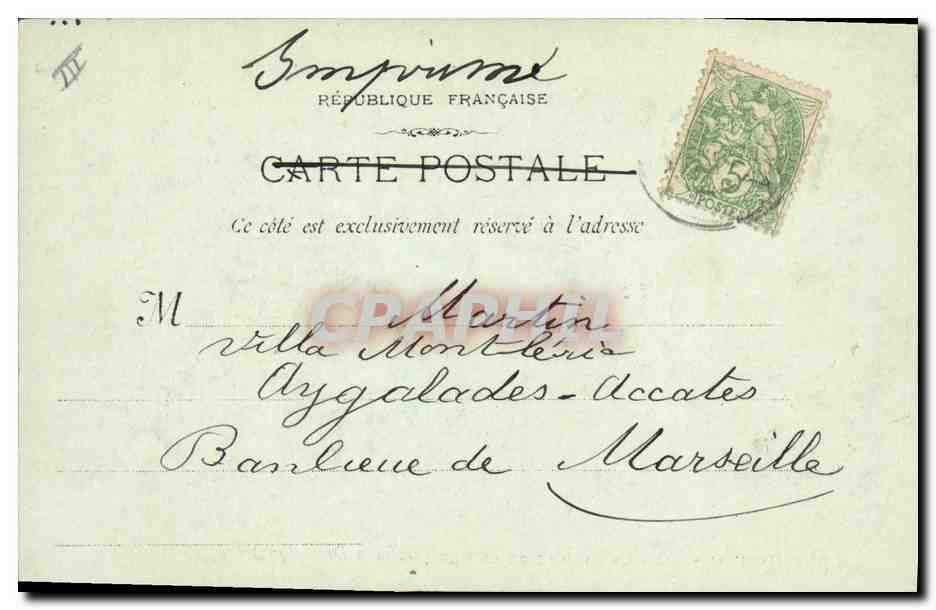 III
Imprimé
RÉPUBLIQUE FRANÇAISE
CARTE POSTALE
5
POSTES
Ce côté est exclusivement réservé à l'adresse
M Martin
CPAPHIL
Villa Montléric
Aygalades-Accates
Banlieue de Marseille